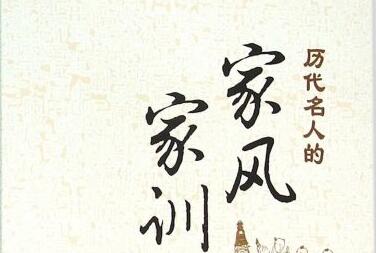 历代名人的
家风
家训